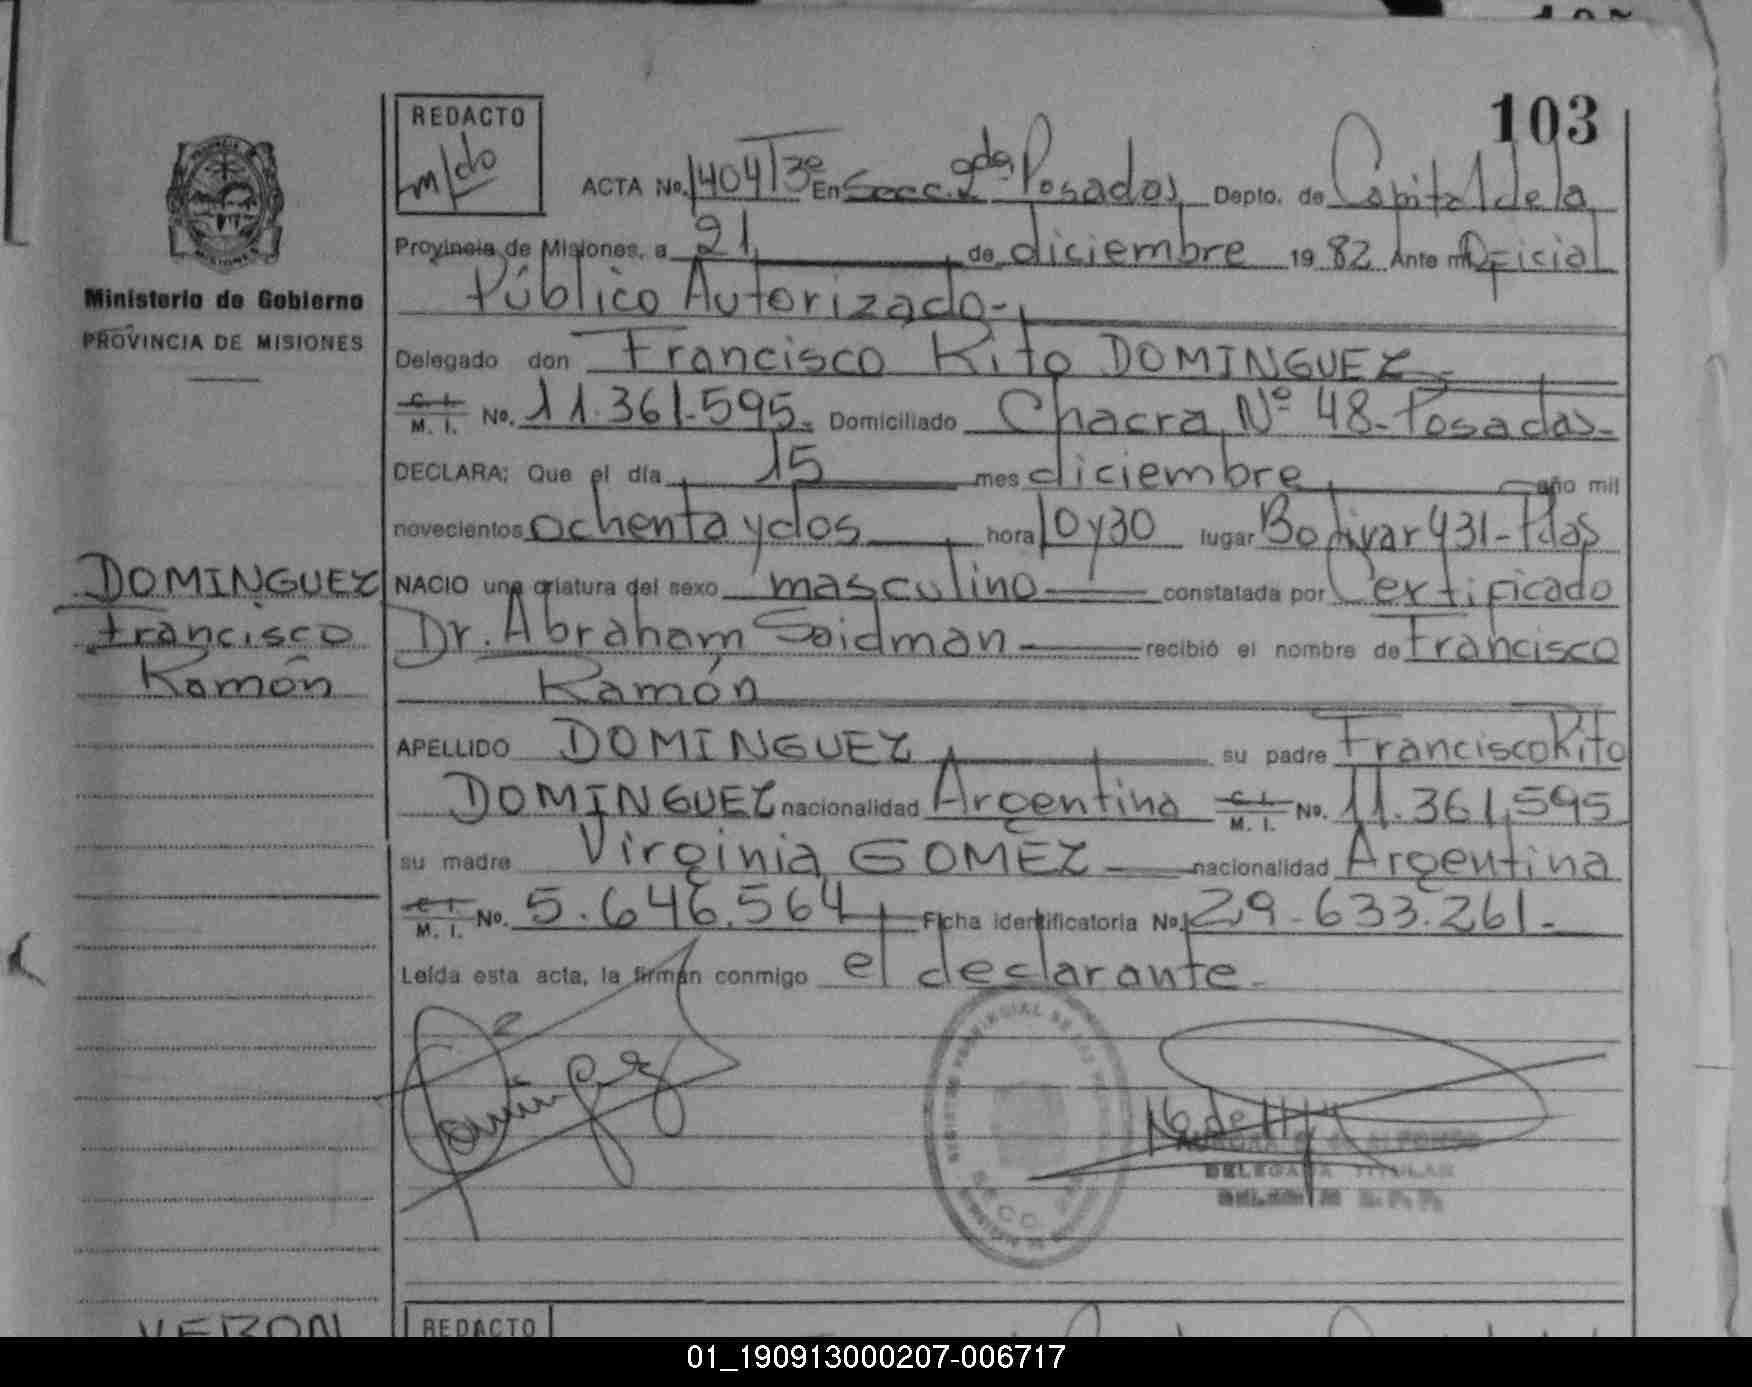 103
REDACTO
m/do
ACTA No. 1404 T3º En Secc. 2da Posadas Depto. de Capital de la
Provincia de Misiones, a 21 de diciembre 19 82 Ante mi Oficial
Público Autorizado-
Delegado don Francisco Rito DOMINGUEZ
C. I. M. I. No. 11.361.595. Domiciliado Chacra Nº 48-Posadas-
DECLARA: Que el día 15 mes diciembre año mil
novecientos ochenta y dos hora 10 y 30 lugar Bolivar 431-Pdas
NACIO una criatura del sexo masculino constatada por Certificado
Dr. Abraham Saidman recibió el nombre de Francisco
Ramón
APELLIDO DOMINGUEZ su padre Francisco Rito
DOMINGUEZ nacionalidad Argentina C. I. M. I. No. 11.361.595
su madre Virginia GOMEZ nacionalidad Argentina
C. I. M. I. No. 5.646.564 Ficha identificatoria No. 29-633.261.-
Leída esta acta, la firman conmigo el declarante.-
Ministerio de Gobierno
PROVINCIA DE MISIONES
DOMINGUEZ
Francisco
Ramón
DELEGADA TITULAR
VERON
REDACTO
01_190913000207-006717